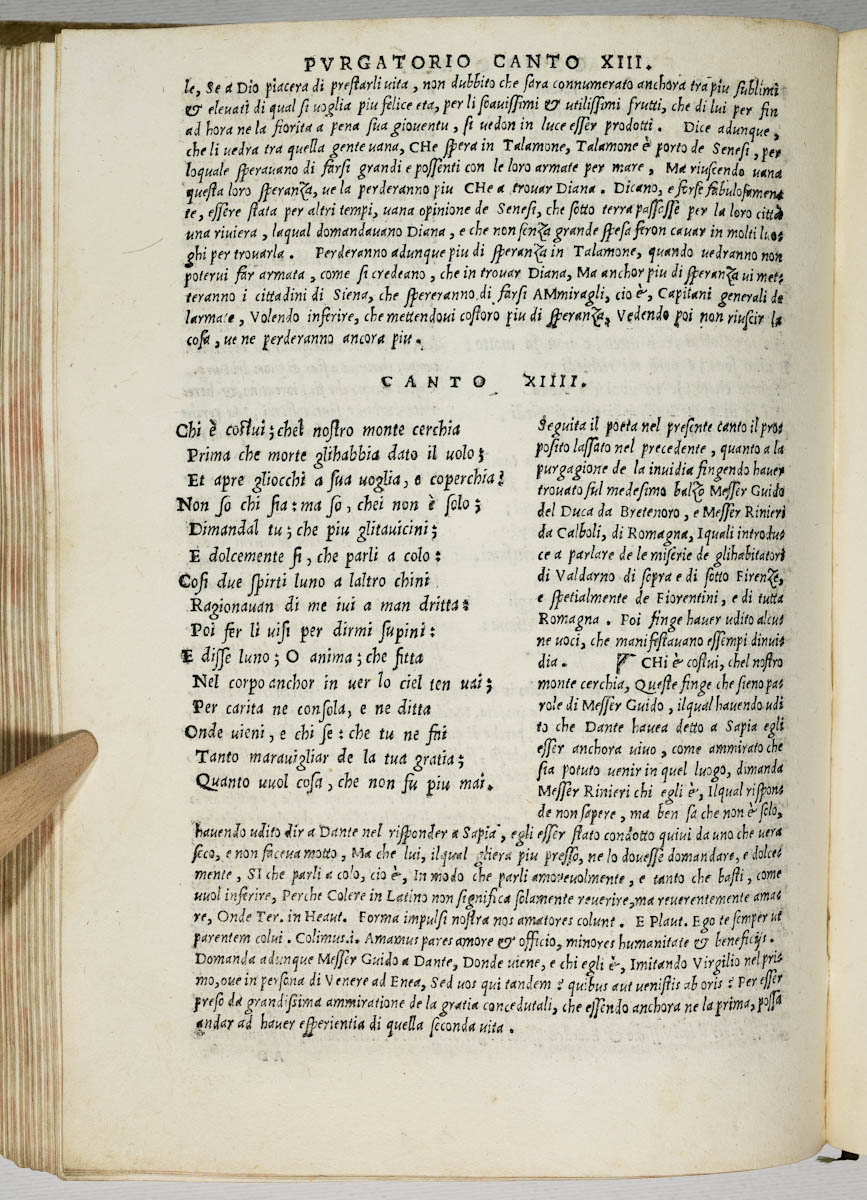 PVRGATORIO CANTO XIII.
le, Se a Dio piacera di prestarli uita, non dubbito che sara connumerato anchora tra piu sublimi
& eleuati di qual si uoglia piu felice eta, per li soauissimi & utilissimi frutti, che di lui per fin
ad hora ne la fiorita a pena sua giouentu, si uedon in luce esser prodotti. Dice adunque,
che li uedra tra quella gente uana, CHe spera in Talamone, Talamone è porto de Senesi, per
loquale sperauano di farsi grandi e possenti con le loro armate per mare, Ma riuscendo uana
questa loro speranza, ue la perderanno piu CHe a trouar Diana. Dicano, e forse fabulosamen
te, essere stata per altri tempi, uana opinione de Senesi, che sotto terra passesse per la loro città
una riuiera, laqual domandauano Diana, e che non senza grande spesa feron cauar in molti luo
ghi per trouarla. Perderanno adunque piu di speranza in Talamone, quando uedranno non
poterui far armata, come si credeano, che in trouar Diana, Ma anchor piu di speranza ui met
teranno i cittadini di Siena, che spereranno di farsi AMmiragli, cio è, Capitani generali de
larmate, Volendo inferire, che mettendoui costoro piu di speranza, Vedendo poi non riuscir la
cosa, ue ne perderanno ancora piu.
CANTO XIIII.
Chi è costui; chel nostro monte cerchia
Prima che morte glihabbia dato il uolo;
Et apre gliocchi a sua uoglia, e coperchia?
Non so chi sia: ma so, chei non è solo;
Dimandal tu; che piu glitauicini;
E dolcemente si, che parli a colo:
Cosi due spirti luno a laltro chini
Ragionauan di me iui a man dritta:
Poi fer li uisi per dirmi supini:
E disse luno; O anima; che fitta
Nel corpo anchor in uer lo ciel ten uai;
Per carita ne consola, e ne ditta
Onde uieni, e chi se: che tu ne fai
Tanto marauigliar de la tua gratia;
Quanto uuol cosa, che non fu piu mai.
Seguita il poeta nel presente canto il pro
posito lassato nel precedente, quanto a la
purgagione de la inuidia fingendo hauer
trouato sul medesimo balzo Messer Guido
del Duca da Bretenoro, e Messer Rinieri
da Calboli, di Romagna, Iquali introdu
ce a parlare de le miserie de glihabitatori
di Valdarno di sopra e di sotto Firenze,
e spetialmente de Fiorentini, e di tutta
Romagna. Poi finge hauer udito alcu
ne uoci, che manifestauano essempi dinui
dia. CHi è costui, chel nostro
monte cerchia, Queste finge che sieno pa
role di Messer Guido, ilqual hauendo udi
to che Dante hauea detto a Sapia egli
esser anchora uiuo, come ammirato che
sia potuto uenir in quel luogo, dimanda
Messer Rinieri chi egli è, Ilqual rispon
de non sapere, ma ben sa che non è solo,
hauendo udito dir a Dante nel risponder a Sapia, egli esser stato condotto quiui da uno che uera
seco, e non faceua motto, Ma che lui, ilqual gliera piu presso, ne lo douesse domandare, e dolce
mente, SI che parli a colo, cio è, In modo che parli amoreuolmente, e tanto che basti, come
uuol inferire, Perche Colere in Latino non significa solamente reuerire, ma reuerentemente ama
re, Onde Ter. in Heaut. Forma impulsi nostra nos amatores colunt. E Plaut. Ego te semper ut
parentem colui. Colimus.i. Amamus pares amore & officio, minores humanitate & beneficijs.
Domanda adunque Messer Guido a Dante, Donde uiene, e chi egli è, Imitando Virgilio nel pri
mo, oue in persona di Venere ad Enea, Sed uos qui tandem? quibus aut uenistis ab oris? Per esser
preso da grandissima ammiratione de la gratia concedutali, che essendo anchora ne la prima, possa
andar ad hauer esperientia di quella seconda uita.